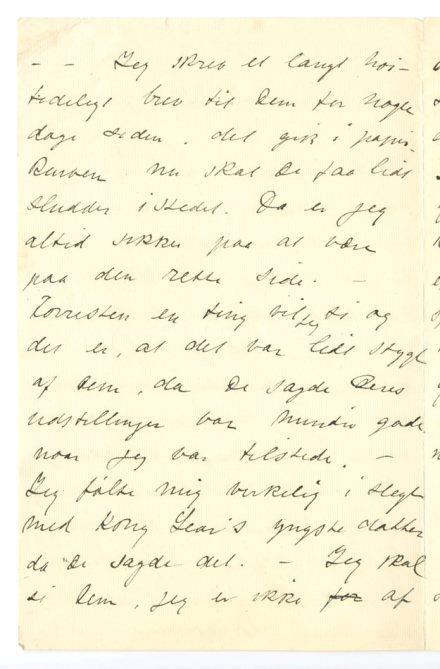 – – Jeg skrev et langt høi-
tideligt brev til Dem for nogle
dage siden, det gik i papir-
kurven nu skal De faa lidt
sludder istedet. Da er jeg
altid sikker paa at være
paa den rette side. –
Forresten en ting vil jeg si og
det er, at det var lidt stygt
af Dem, da De sagde Deres
udstillinger var mindre gode
naar jeg var tilstede. –
Jeg følte mig virkelig i slegt
med Kong Lear's yngste datter
da De sagde det. – Jeg skal
si Dem, jeg er ikke for af